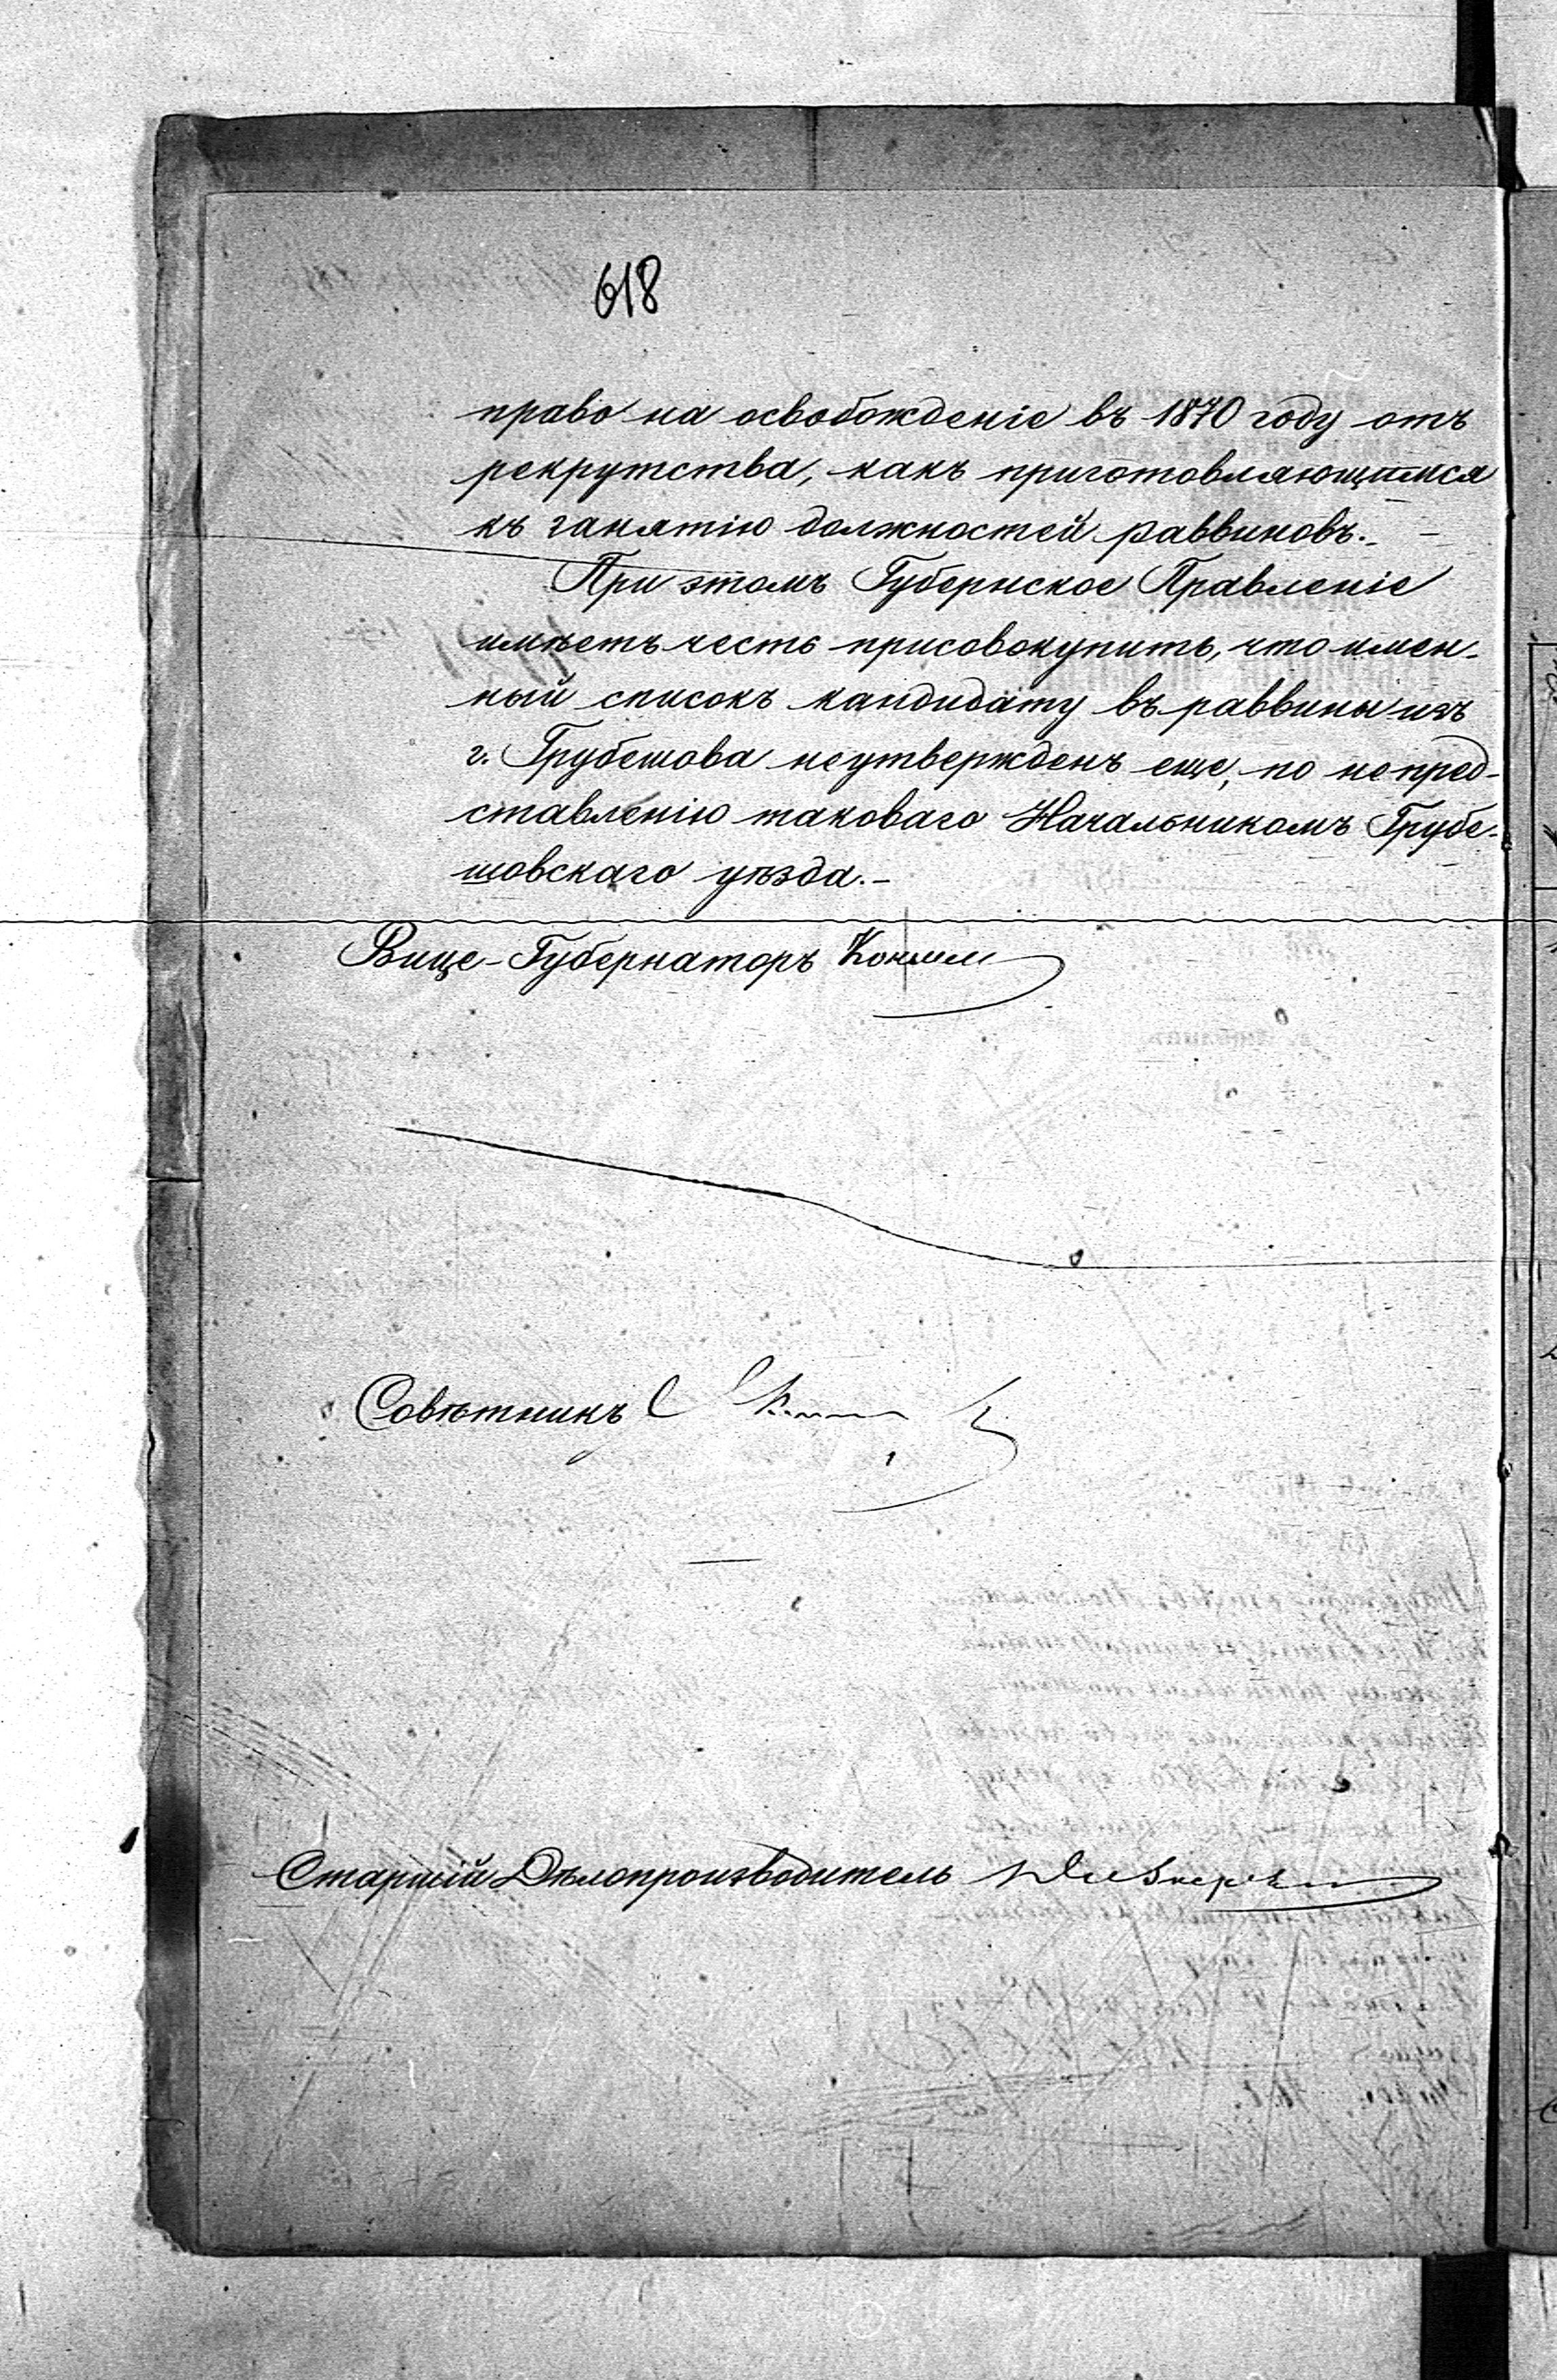 618
право на освобожденіе въ 1870 году отъ
рекрутства, какъ приготовляющимся
къ занятію должностей раввиновъ.-
При этомъ Губернское Правленіе
имѣетъ честь присовокупить, что имен-
ный списокъ кандидату въ раввины изъ
г. Грубешова неутвержденъ еще, по непред-
ставленію таковаго Начальникомъ Грубе-
шовскаго уѣзда.-
Вице-Губернаторъ
Совѣтникъ
Старшій Дѣлопроизводитель